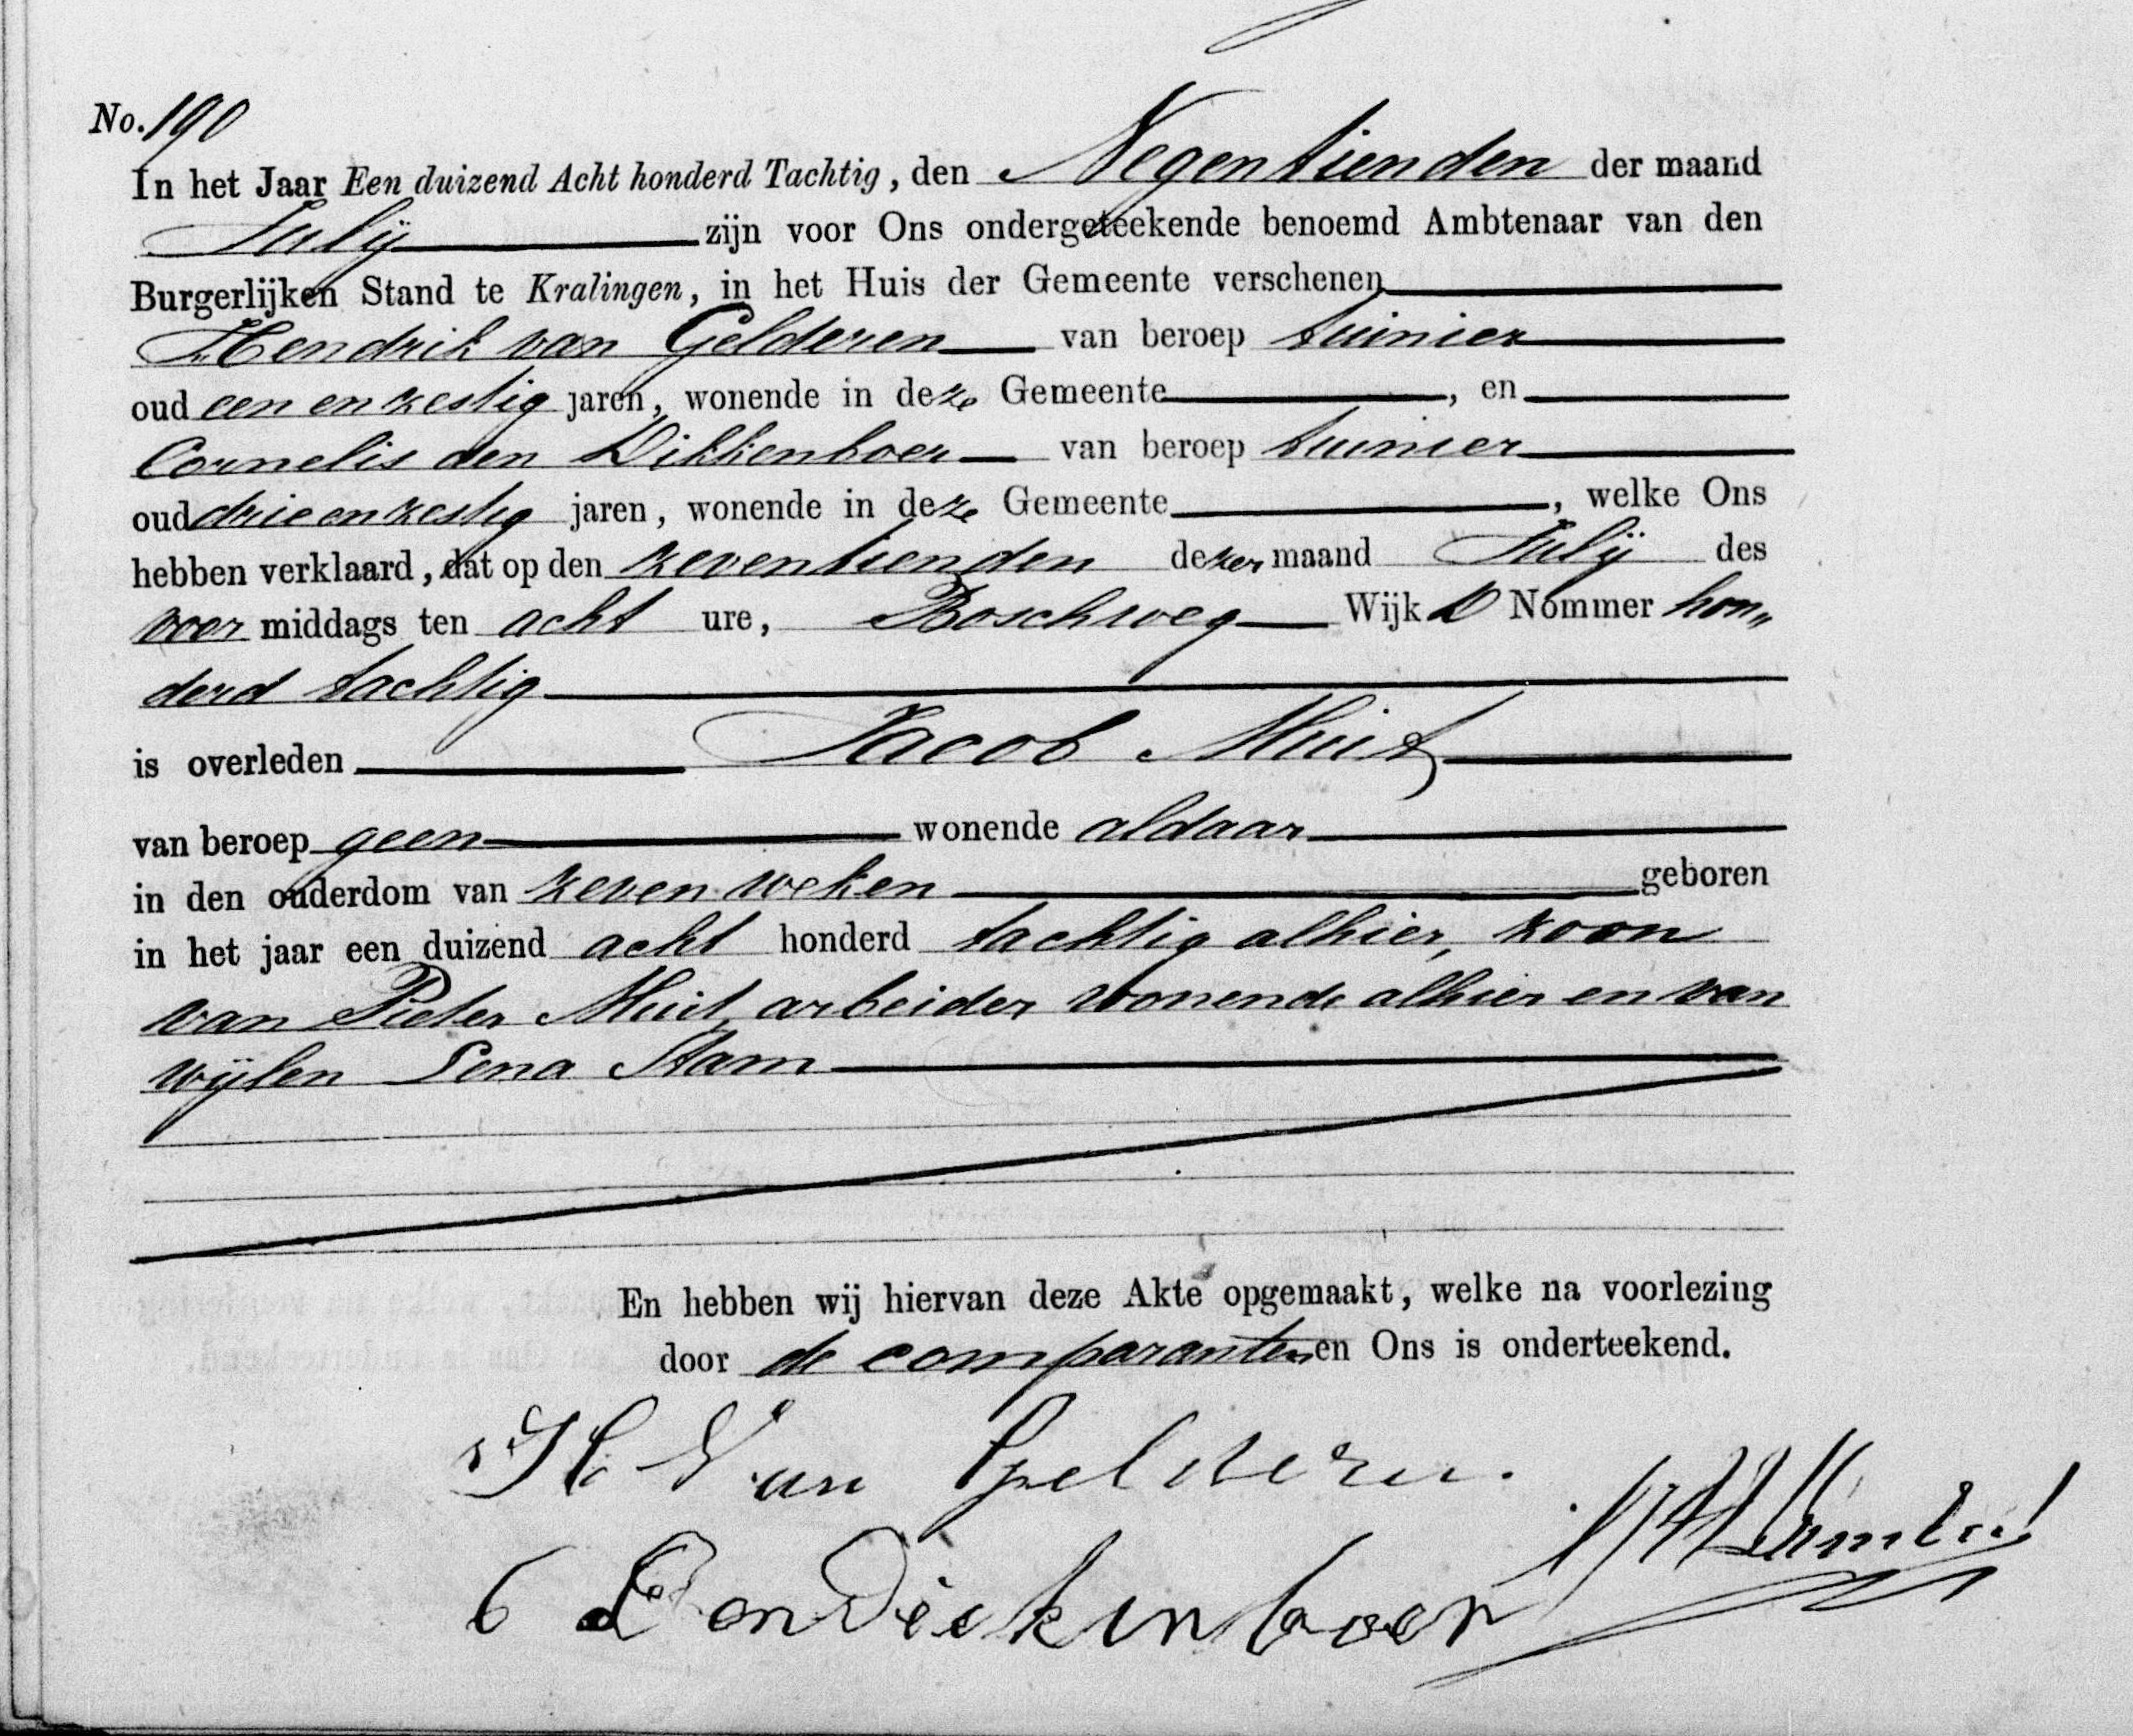 No. 190
In het Jaar Een duizend Acht honderd Tachtig, den Negentienden der maand
Julij zijn voor Ons ondergeteekende benoemd Ambtenaar van den
Burgerlijken Stand te Kralingen, in het Huis der Gemeente verschenen
Hendrik van Gelderen van beroep tuinier
oud een en zestig jaren, wonende in deze Gemeente, en
Cornelis den Dikkenboer van beroep tuinier
oud drie en zestig jaren, wonende in deze Gemeente, welke Ons
hebben verklaard, dat op den zeventienden dezer maand Julij des
voor middags ten acht ure, Boschweg Wijk D Nommer hon„
derd tachtig
is overleden Jacob Muit
van beroep geen wonende aldaar
in den ouderdom van zeven weken geboren
in het jaar een duizend acht honderd tachtig alhier, zoon
van Pieter Muit, arbeider wonende alhier en van
wijlen Lena Stam
En hebben wij hiervan deze Akte opgemaakt, welke na voorlezing
door de comparanten en Ons is onderteekend.
H. Van Gelderen.
C Den Dickenboer